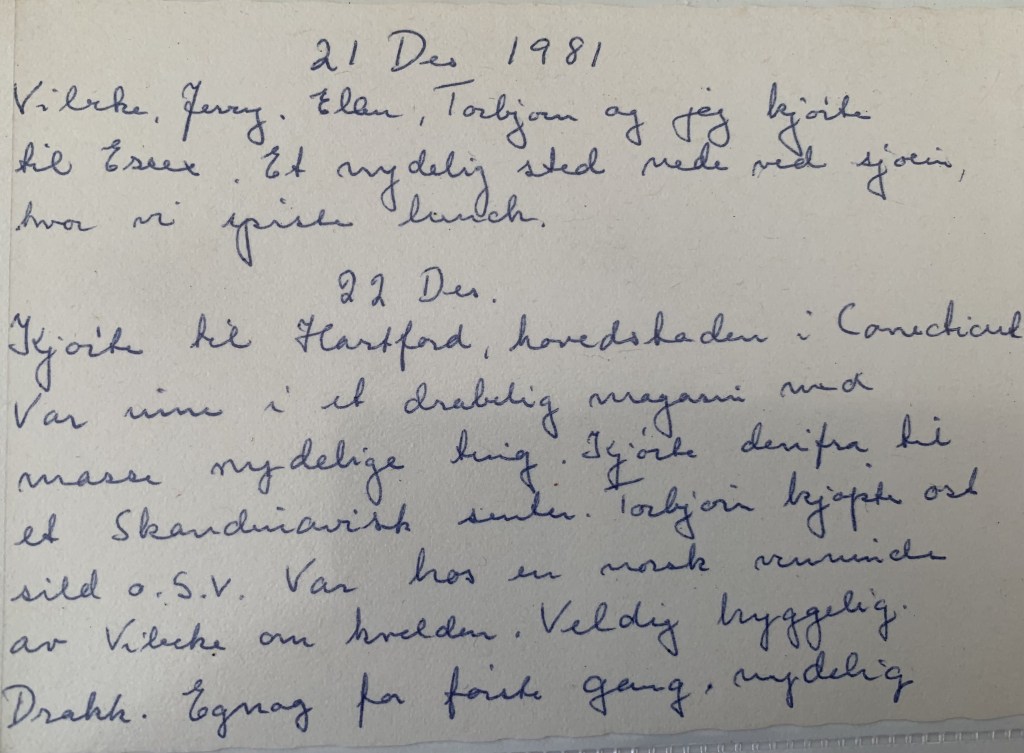 21 Des 1981
Vibeke, Jerry. Elan, Torbjørn og jeg kjørte
til Essex. Et nydelig sted nede ved sjøen,
hvor vi spiste lunch.
22 Des.
Kjørte til Hartford, hovedstaden i Conecticut
Var inne i et drabelig magasin med
masse nydelige ting. Kjørte derifra til
et Skandinavisk senter. Torbjørn kjøpte ost
sild o.S.V. Var hos en norsk venninde
av Vibeke om kvelden. Veldig hyggelig.
Drakk. Egnog for første gang, nydelig